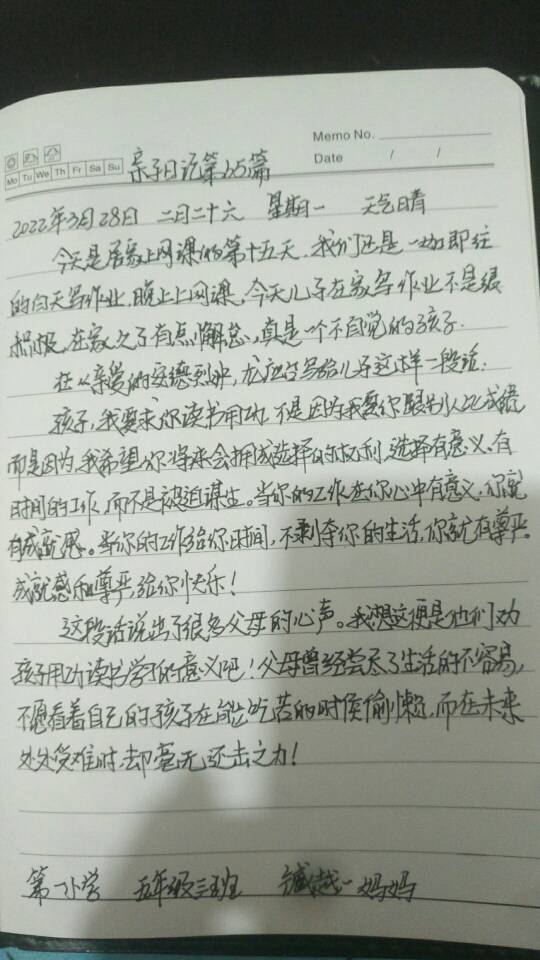 Memo No.
Mo Tu We Th Fr Sa Su
Date / /
亲子日记第65篇
2022年3月28日 二月二十六 星期一 天气晴
今天是居家上网课的第十五天,我们还是一如即往
的白天写作业,晚上上网课,今天儿子在家写作业不是很
积极,在家久了有点懈怠,真是一个不自觉的孩子.
在《亲爱的安德烈》中,龙应台写给儿子这样一段话:
孩子,我要求你读书用功,不是因为我要你跟别人比成绩
而是因为,我希望你将来会拥成选择的权利,选择有意义、有
时间的工作,而不是被迫谋生。当你的工作在你心中有意义,你就
有成就感。当你的工作给你时间,不剥夺你的生活,你就有尊严。
成就感和尊严,给你快乐!
这段话说出了很多父母的心声。我想这便是他们劝
孩子用功读书学习的意义吧!父母曾经尝尽了生活的不容易,
不愿看着自己的孩子在能吃苦的时侯偷懒,而在未来
处处受难时,却毫无还击之力!
第一小学 五年级三班 臧越一妈妈